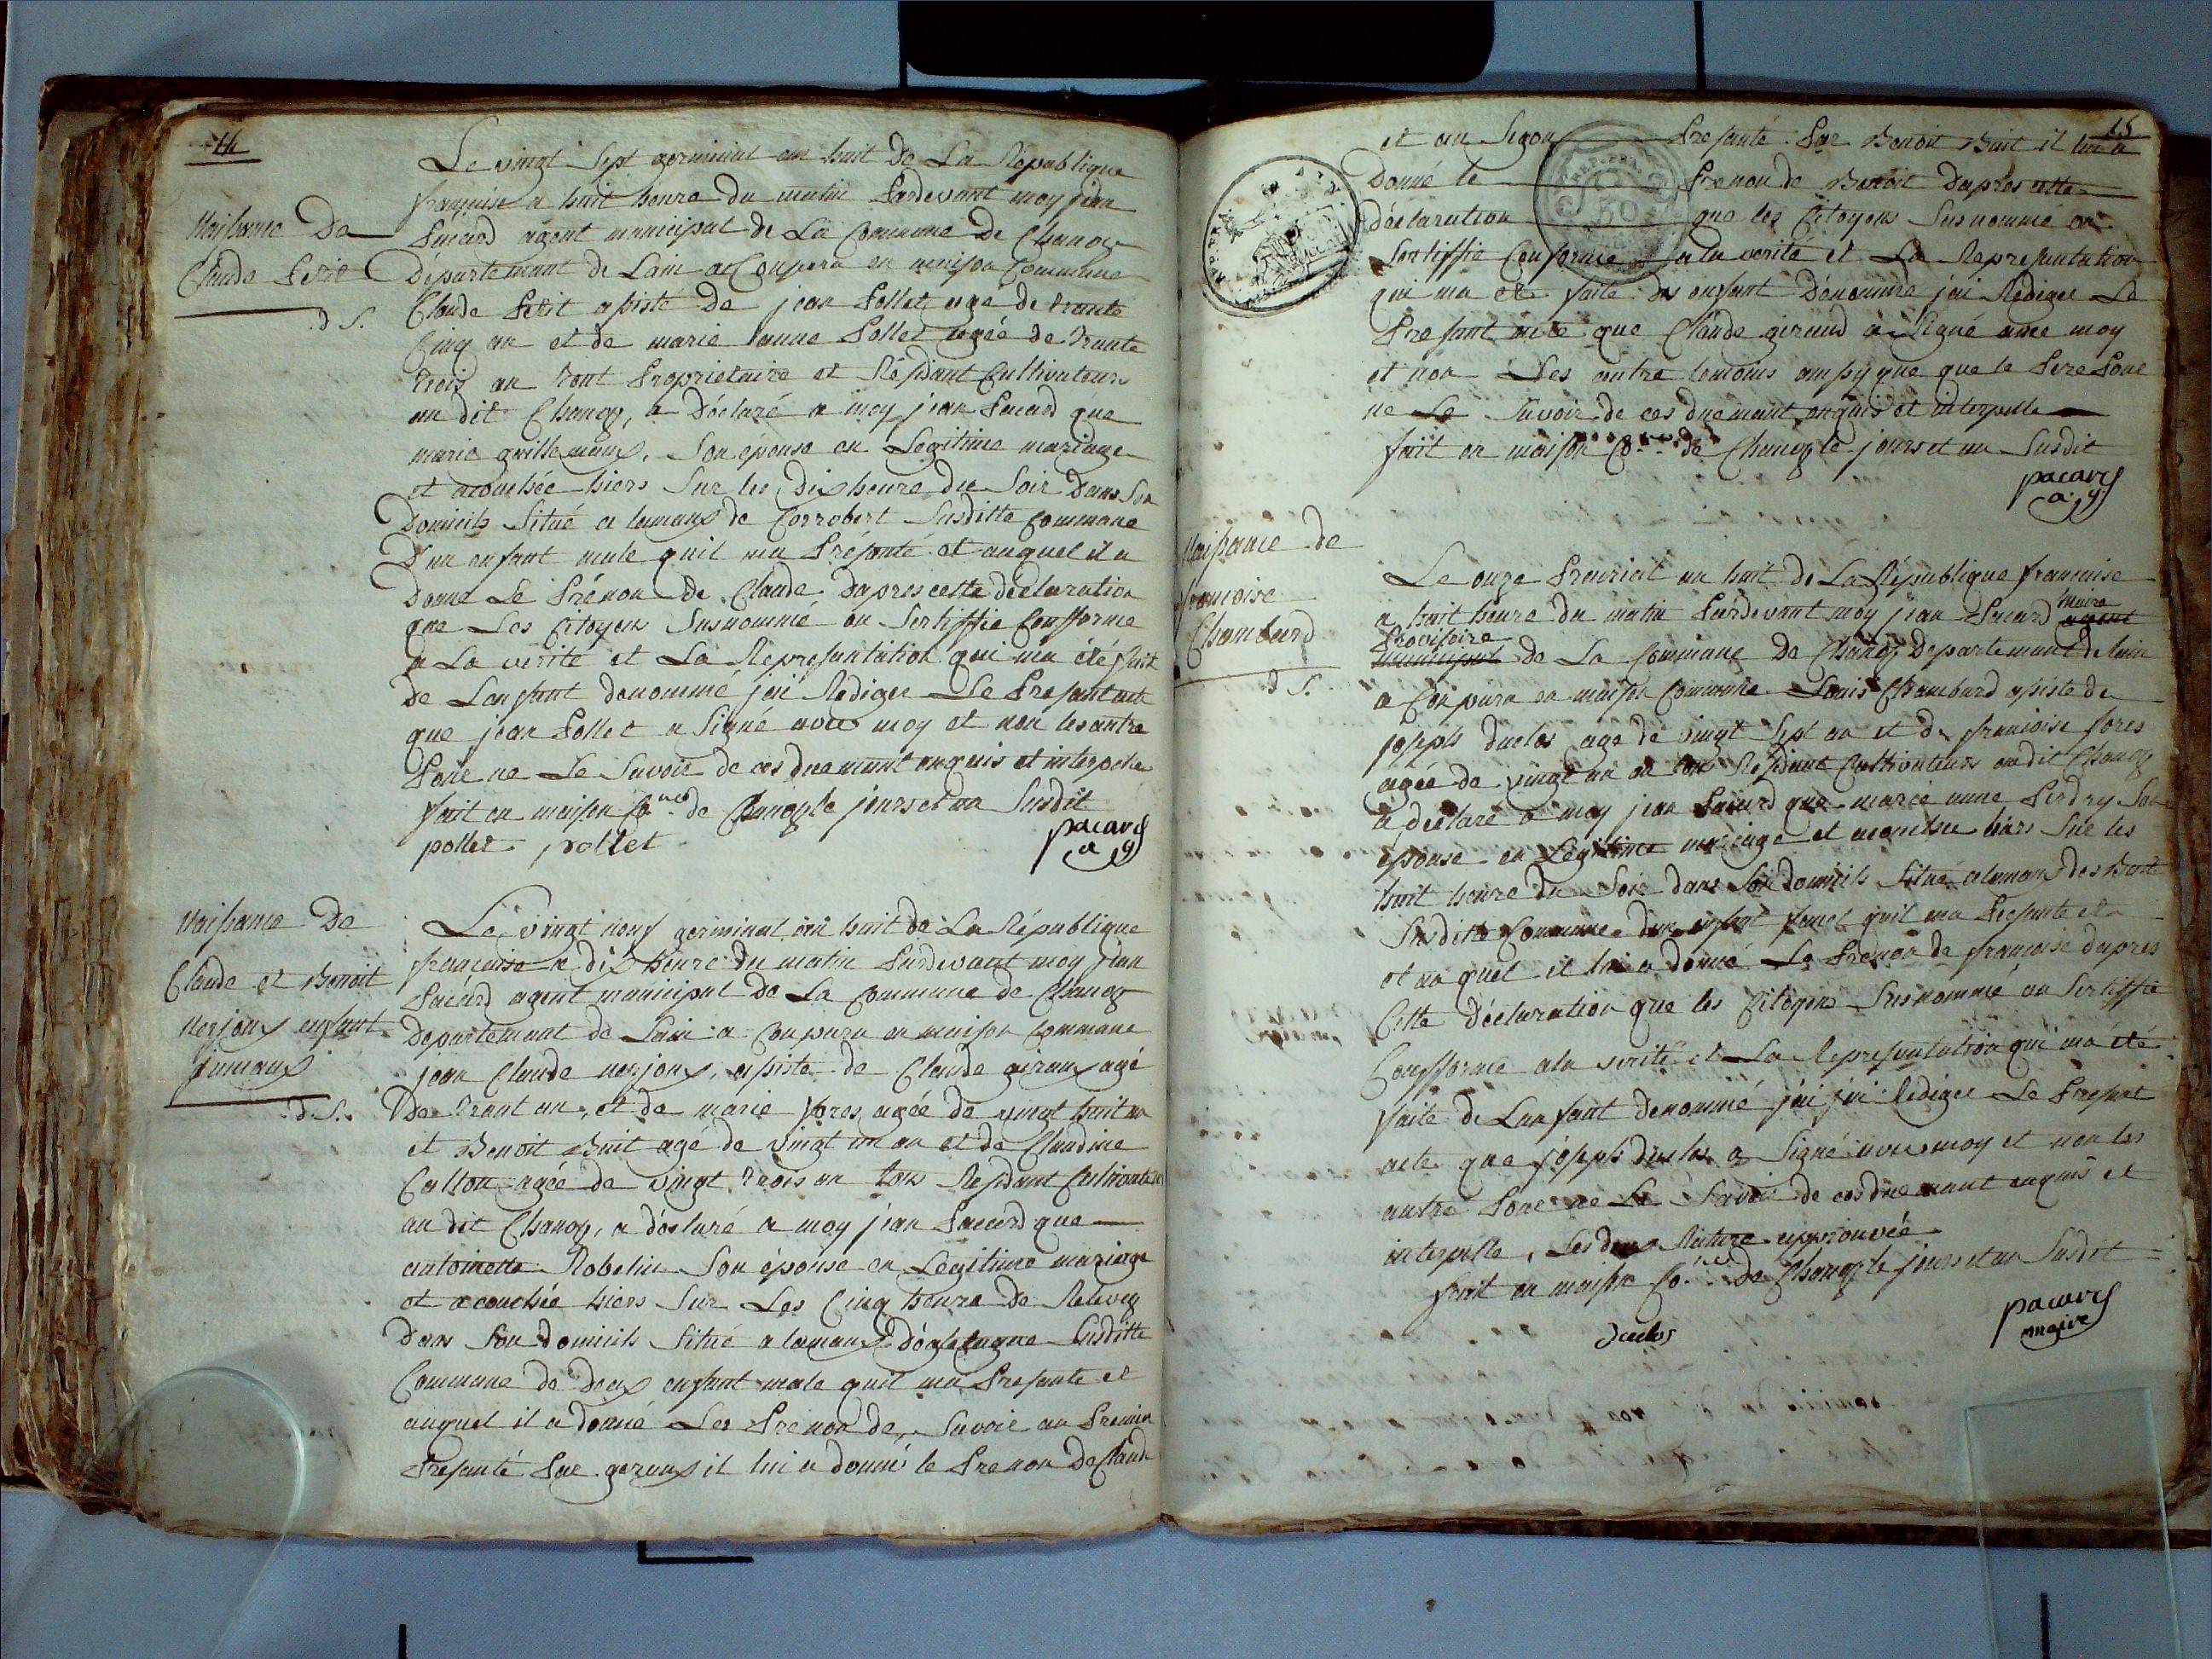 14
Le vingt Sept germinal an huit de La République
francoise a huit heure du matin Pardevant moy jean
Pacard agent municipal de La Commune de Chanoz
Naissance De
Claude Petit
d S.
Département de Lain a Conparu en maison Commune
Claude Petit assisté de jean Pollet age de trante
Cinq an et de marie anne Pollet agée de trante
trois an tout Proprietaire et Résidant Cultivateurs
au dit Chanoz, a Déclaré a moy jean Pacard que
marie guillemaux, Son épouse en Legitime mariage
et acouchée hiers Sur les Dix heure du Soir dans Son
Domicils Situé a lamaux de Corrobert Susditte Commune
D'un enfant male quil ma Présanté et auquel il a
Donné Le Prénon de Claude Dapres cette déclaration
que Les Citoyens Susnommé on Sertiffie Conforme
a La verité et La Represantation qui ma été fait
de Lanfant denommé jai Rediger Le Present acte
que jean Pollet a Signé avec moy et non les autre
Pour ne Le Savoir de ces duemant enquis et interpelle
fait en maison Co.nes de Chanoz le jours et an Susdit
pollet pollet pacard
a g
Naissance De
Claude et Benoit
Nerjoux enfant
jumaux
d S.
Le vingt neuf germinal an huit de La République
francoise a dix heure du matin Pardevant moy jean
Pacard agent municipal de La Commune de Chanoz
Departemant de Lain a Conparu en maison Commune
jean Claude nerjoux, assisté de Claude giraux agé
De trant an, et de marie fores agée de vingt huit an
et Benoit Buit agé de vingt un an et de Claudine
Callon agée de vingt trois an tous Residant Cultivateurs
au dit Chanoz, a déclaré a moy jean Pacard que
antoinette Robelin Son épouse en Legitime mariage
et acouchée hiers Sur Les Cinq heure de Relevez
Dans Son domicils Situé a lamaux Susditte
Commune de deux enfant male quil ma Presante et
auquel il a donné Les Prenon de, Savoir au Premier
Presanté Par geraux il lui a donné le Prenon De Claude
15
et au Segon Presanté Par Benoit Buit il lui a
Donné le Prenon de Benoit Dapres cette
déclaration que les Citoyens Susnommé on
Sertiffie Conforme a la verité et La Represantation
qui ma été faite des enfant Dénommé jai Rediger Le
Presant acte que Claude giraud a Signé avec moy
et non Les autre temoins que le Pere Pour
ne Le Savoir de ces duemant enquis et interpelle
fait en maison Co. de Chanoz le jours et an Susdit
pacard
a g
Naissance de
francoise
Chambard
d S.
Le onze Prairial an huit de La République francoise
a huit heure du matin Pardevant moy jean Pacard maire
Provisoire de La Commune de Chanoz Departemant de lain
a Conparu en maison Commune Louis Chambard assisté de
joseph duclos age de vingt Sept an et de francoise fores
agée de vingt un an tous Résidant Cultivateurs au dit Chanoz
a déclaré a moy jean Pacard que marie anne Perdry Son
épouse en Legitime mariage et acouchee hiers Sur les
huit heure du Soir dans Son Domicils Situé a lamaux des
Susditte Commune dun enfant femel quil ma Presante et
et au quel il lui a donné Le Prenon de francoise dapres
Cette déclaration que les Citoyens Susnommé on Sertiffie
Conforme a la verité et La Represantation qui ma été
faite de Lanfant denommé jai jai Rediger Le Present
acte que joseph duclos a Signé avec moy et non les
autre Pour ne Le Savoir de ces duemant enquis et
interpelle, Les deux Rature approuvée
fait en maison Co.nes de Chanoz le jours et an Susdit
duclos pacard
maire